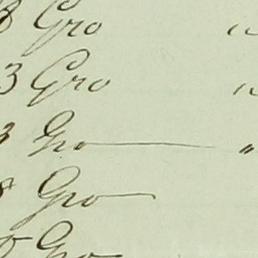 8 Gro
3 Gro
3 Gro "
8 Gro
Gro